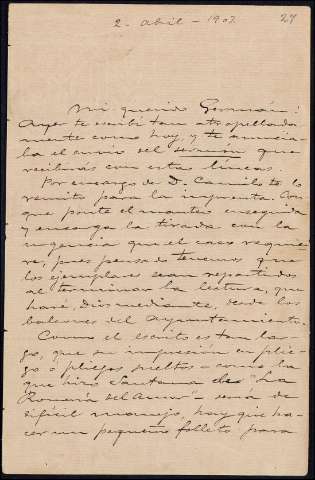 2. abril - 1907
27
Mi querido Germán:
Ayer te escribí tan atropellada
mente como hoy, y te anuncia
ba el envío del sermón que
recibirás con estas líneas.
Por encargo de D. Camilo te lo
remito para la imprenta. Con
que ponte el manteo enseguida
y encarga la tirada con la
urgencia que el caso requie
re, pues pensado tenemos que
los ejemplares sean repartidos
al terminar la lectura, que
hará, Dios mediante, desde los
balcones del ayuntamiento.
Como el escrito es tan lar
go, que su impresión en plie
go o pliegos sueltos - como la
que hizo Santana de "La
Romería del Amor" - sería de
difícil manejo, hay que ha
cer un pequeño folleto para